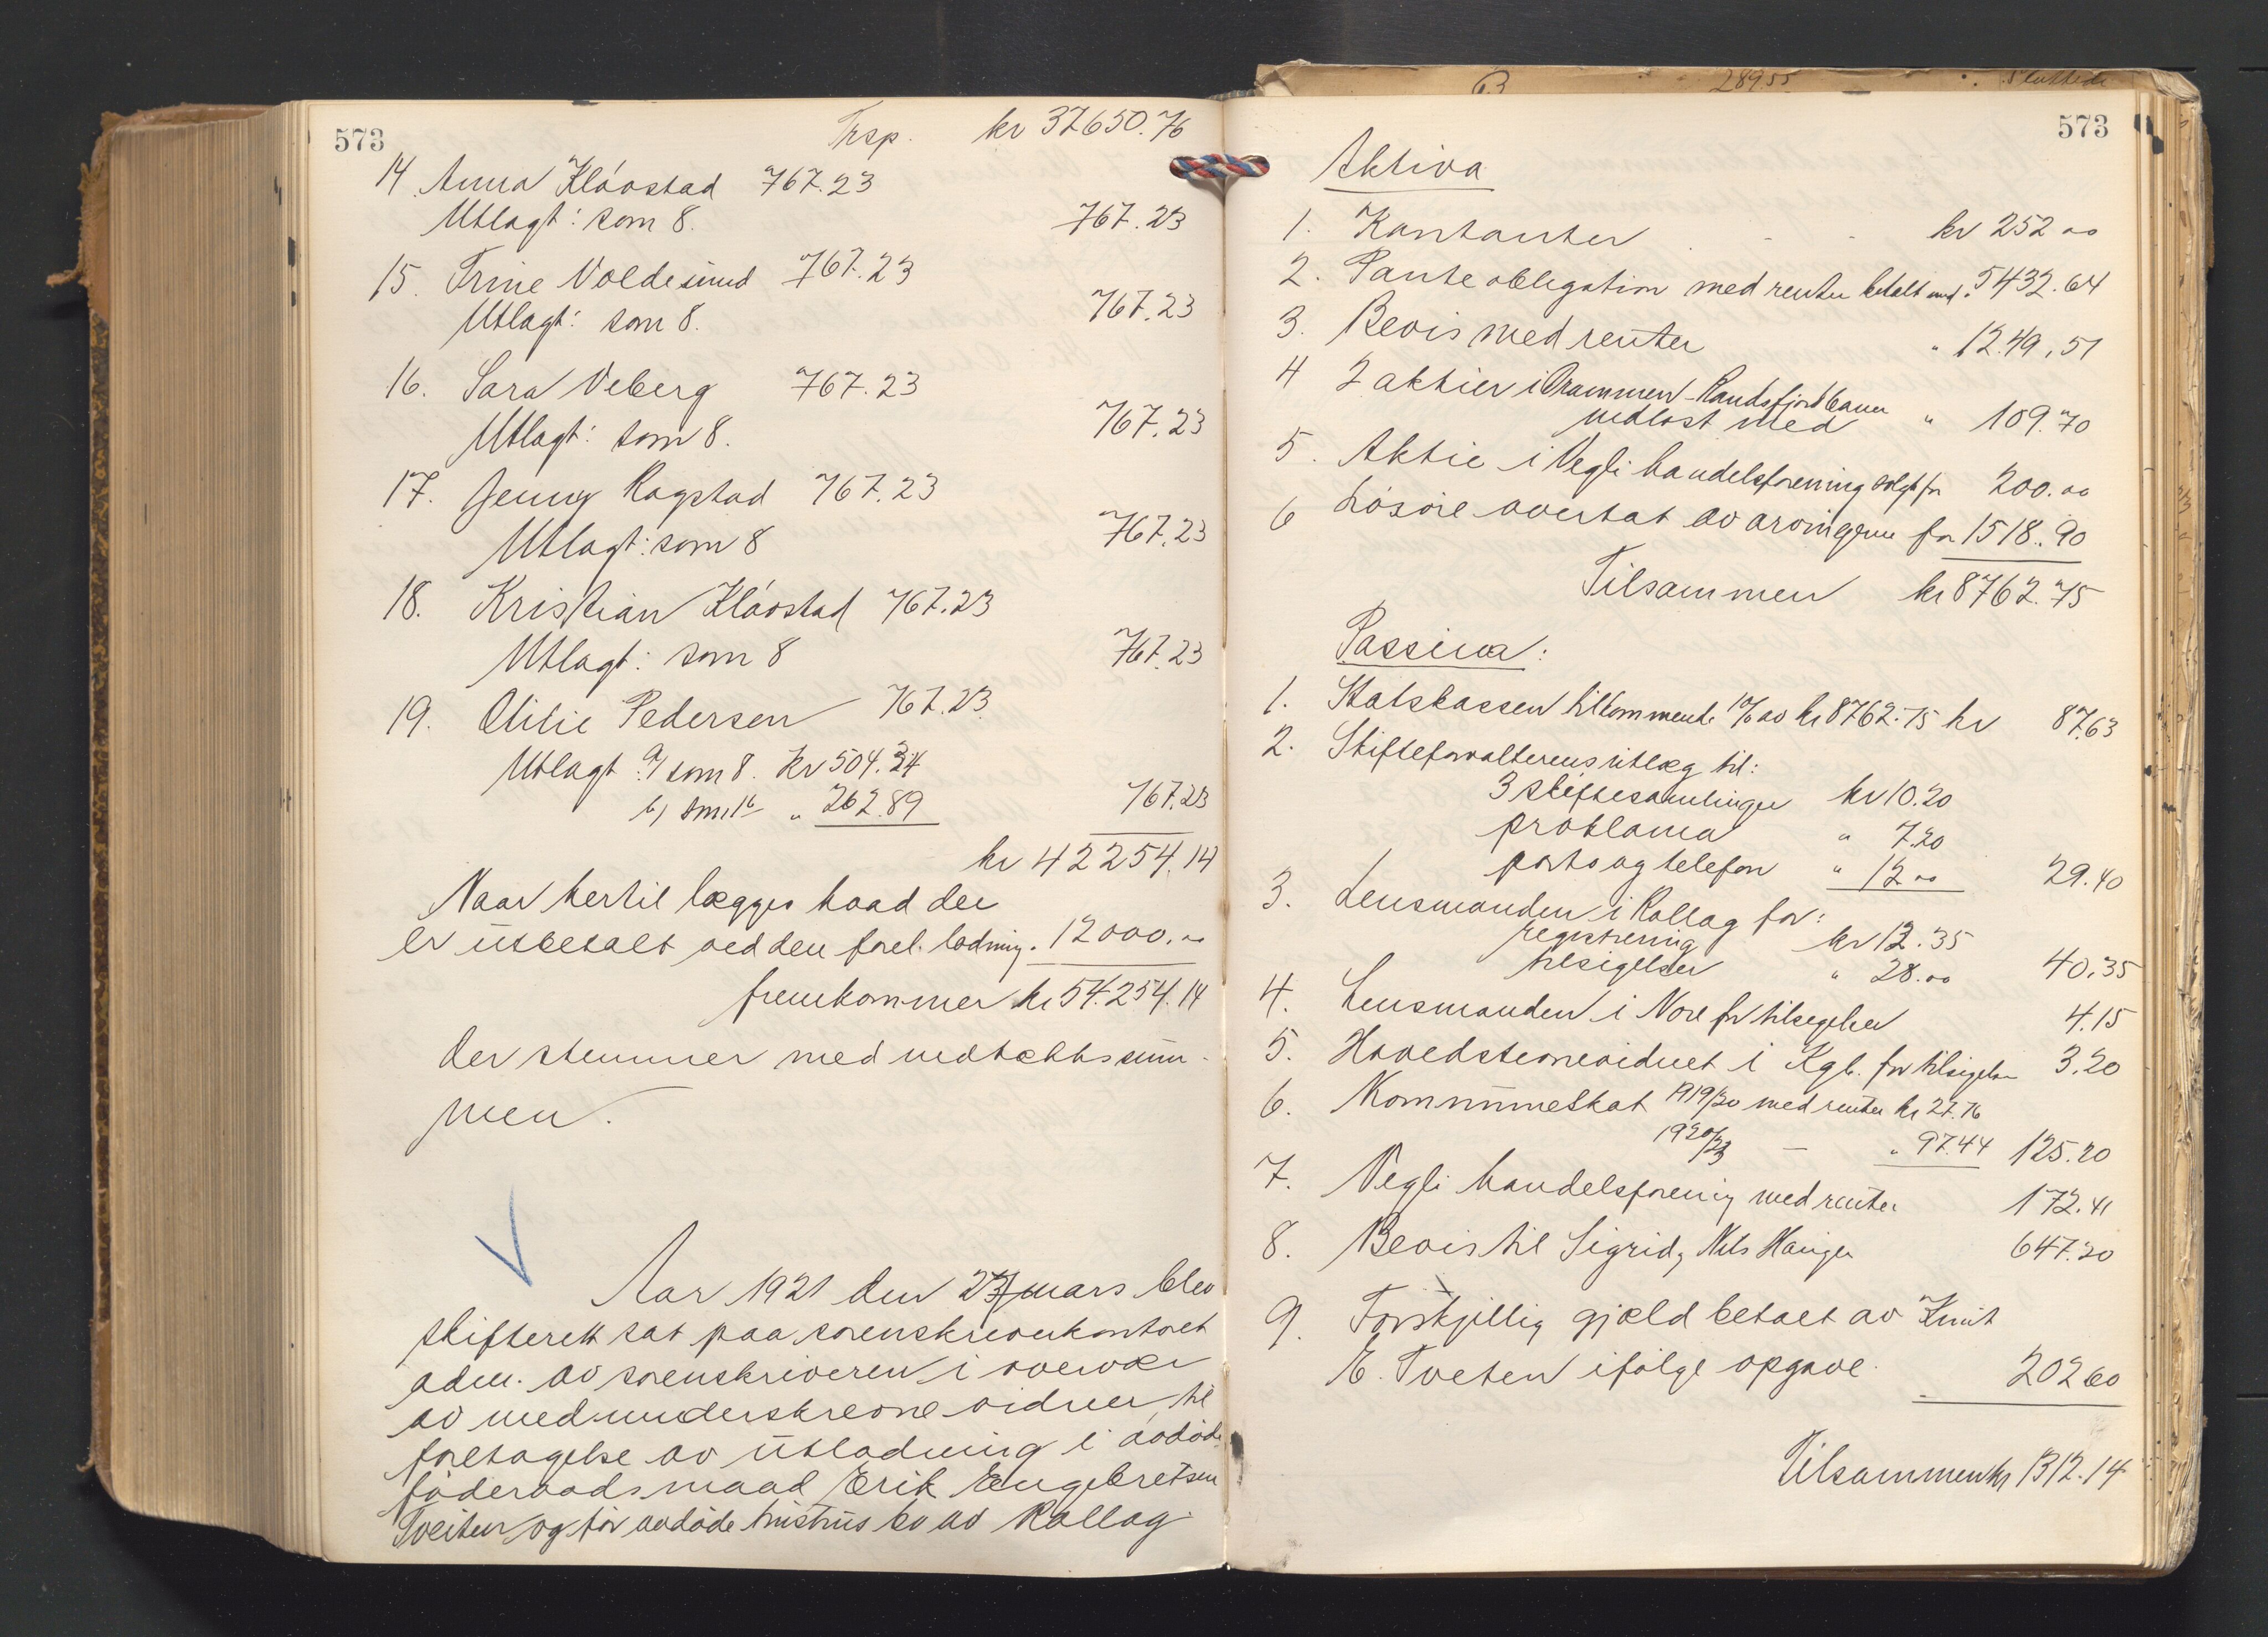 573
Trsp. kr 37650.76
14 Anna Kláostad 767.23
Utlagt: som 8. 767.23
15. Trine Voldesund 767.23
Utlagt: som 8. 767.23
16. Sara Veberg 767.23
Utlagt: som 8. 767.23
17. Jenny Rogstad 767.23
Utlagt: som 8 767.23
18. Kristian Kláostad 767.23
Utlagt: som 8 767.23
19. Otilie Pedersen 767.23
Utlagt a/ som 8. Kr 504.34
b/ som 16 " 262.89 767.23
kr 42254.14
Naar hertil lægges hvad der
er utbetalt ved den forel. lodning. 12000.00
fremkommer kr 54.254.14
der stemmer med indtektssum-
men.
Aar 1921 den 23/mars blev
skifterett sat paa sorenskriverkontoret
adm. av sorenskriveren i overvær
av medunderskrevne vidner, til
foretagelse av utlodning i avdöde
föderaadsmand Erik Engebretsen
Tveiten og för avdöde hustrus bo av Rollag
289.55
Sluttede
573
Aktiva
1. Kontanter kr 252 00
2. Panteobligation med renter betalt med " 5432.64
3. Bevis med renter " 1249.51
4 2 aktier i Drammen-Randsfjordbanen
indlöst med " 109.70
5. Aktie i Vegli handelsforening solgt for 200.00
6 Lösöre overtat av arvingerne for 1518.90
Tilsammen kr 8762.75
Passiva:
1. Statskassen tilkommende 1% av kr 8762.75 kr 87.63
2. Skifteforvalterens utlæg til:
3 skiftesamlinger kr 10.20
proklama " 7.20
porto og telefon " 12 00 29.40
3. Lensmanden i Rollag for:
registrering kr 12.35
tilsigelser " 28.00 40.35
4. Lensmanden i Nore for tilsigelser 4.15
5. Hovedstevnevidnet i Kgb. for tilsigelse 3.20
6. Kommuneskat 1919/20 med renter kr 27.76
1920/23 — " 97.44 125.20
7. Vegli handelsforening med renter 172.41
8. Bevis til Sigrid, Nils 647.20
9. Forskjellig gjæld betalt av Knut
E. Tveten ifölge opgave. 202 60
Tilsammen kr 1312.14